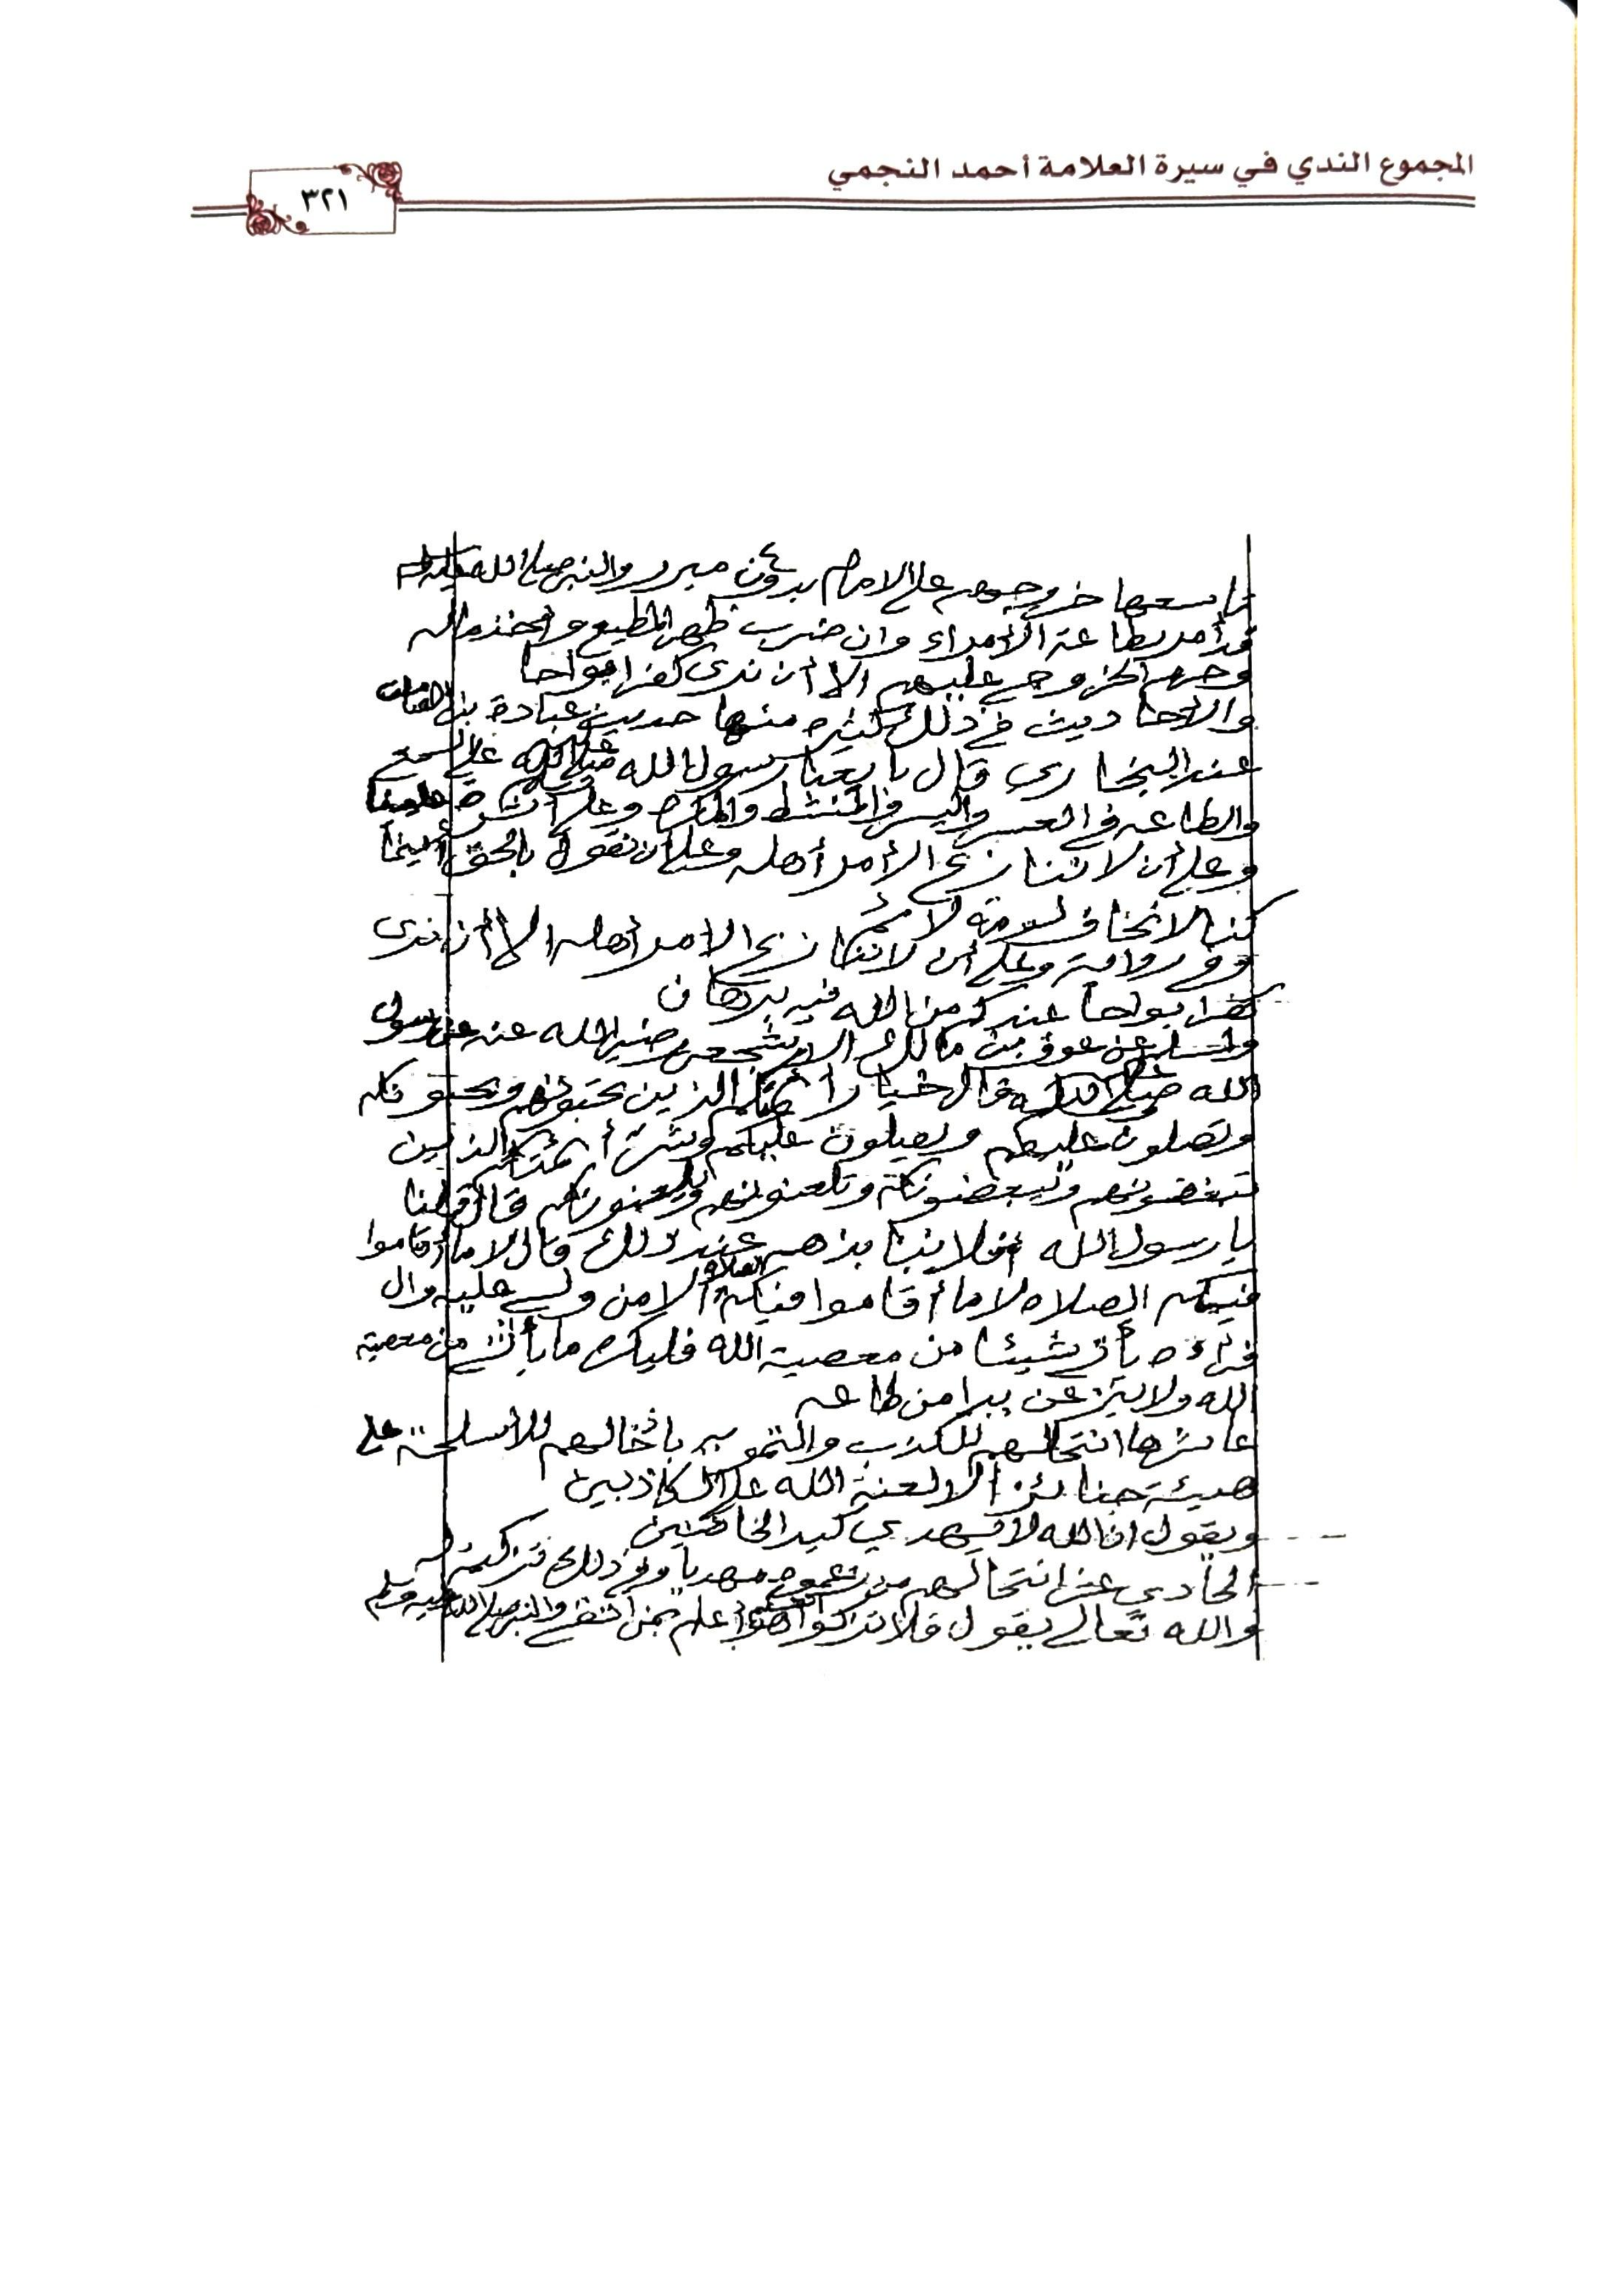 المجموع الندي في سيرة العلامة أحمد النجمي
٣٢١
تاسعها خروجهم على الامام بدون مبرر والنبي صلى الله عليه وسلم
قد أمر بطاعة الأمراء وان ضرب ظهر المطيع وأخذ ماله
وحرم الخروج عليهم الا أن نرى كفرا بواحا
والأحاديث في ذلك كثيره منها حديث عبادة بن الصامت
عند البخاري قال بايعنا رسول الله صلى الله عليه وسلم على السمع
والطاعه في العسر واليسر والمنشط والمكره وعلى أثرة علينا
وعلى أن لا ننازع الأمر أهله وعلى أن نقول بالحق أينما
كنا لا نخاف لومة لائم
وفي رواية وعلى أن لا ننازع الامر أهله الا أن نرى
كفرا بواحا عندكم من الله فيه برهان
ولمسلم عن عوف بن مالك الاشجعي رضي الله عنه عن رسول
الله صلى الله عليه وسلم قال خيار أئمتكم الذين تحبونهم ويحبونكم
وتصلون عليهم ويصلون عليكم وشر أئمتكم الذين
تبغضونهم ويبغضونكم وتلعنونهم ويلعنونكم قال قلنا
يا رسول الله أفلا ننابذهم عند ذلك قال لا ما أقاموا
فيكم الصلاه لا ما أقاموا فيكم الصلاة الا من ولي عليه وال
فرآه يأتي شيئا من معصية الله فليكره ما يأتي من معصية
الله ولا ينزعن يدا من طاعه
عاشرها انتحالهم للكذب والتمويه بادخالهم للأسلحة على
هيئة جنائز ألا لعنة الله على الكاذبين
ويقول ان الله لا يهدي كيد الخائنين
الحادي عشر انتحالهم من زعموه مهديا وفي ذلك تزكية له
والله تعالى يقول فلا تزكوا أنفسكم هو أعلم بمن اتقى والنبي صلى الله عليه وسلم